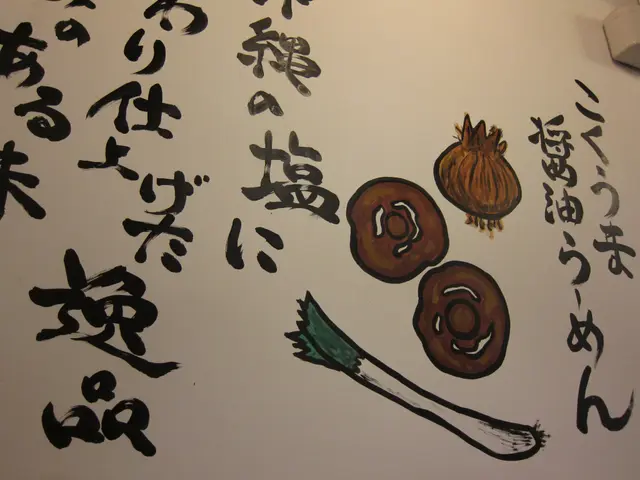 こくうま
醤油らーめん
縄の塩に
わり仕上げた
逸品
の
ある味